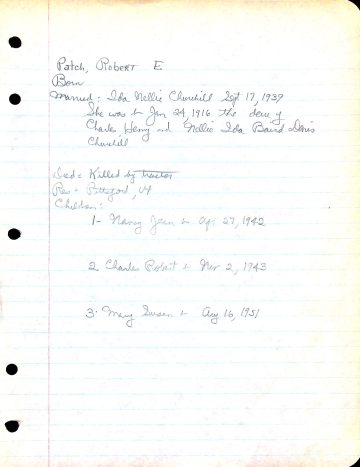 Patch, Robert E
Born
Married: Ida Nellie Churchill Sept 17, 1937
She was b Jan 24, 1916 the dau of
Charles Henry and Nellie Ida Baird Davis
Churchill
Died: Killed by tractor
Res - Pittsford, Vt
Children:
1- Nancy Jean b Apr 27, 1942
2 Charles Robert b Nov 2, 1943
3. Mary Susan b Aug 16, 1951